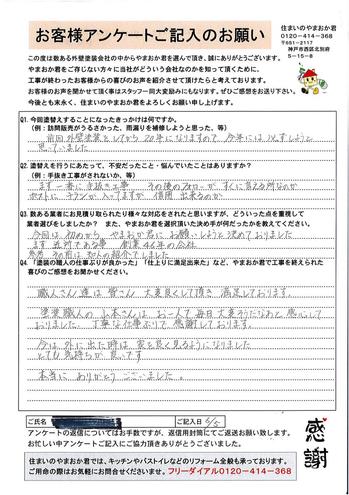 お客様アンケートご記入のお願い
住まいのやまおか君
0120-414-368
〒651-2117
神戸市西区北別府
5-15-8
この度は数ある外壁塗装会社の中からやまおか君を選んで頂き、誠にありがとうございます。
やまおか君をご存じない方々に当社がどういう会社なのかを知って頂くために、
工事が終わったお客様からの喜びのお声を紹介させて頂けたらと考えております。
お客様のお声を聞かせて頂く事はスタッフ一同大変励みになります。ぜひご感想をお送り下さい。
今後とも末永く、住まいのやまおか君をよろしくお願い申し上げます。
Q1. 今回塗替えすることになったきっかけは何ですか。
(例:訪問販売がうるさかった、雨漏りを補修しようと思った、等)
前回外壁塗装をしてから20年になりますので、今年には必ずしようと
思っていました
Q2. 塗替えを行うにあたって、不安だったこと・悩んでいたことはありますか?
(例:手抜き工事がこわいか、等)
まず一番に手抜き工事、その後のフォローが、すぐに言える所なのか
ポストに チラシが入ってますが 信用出来るのか
Q3. 数ある業者にお見積り取られたり様々な対応をされたと思いますが、どういった点を重視して
業者選びをしましたか? また、やまおか君をお選び頂いた決め手が何だったかを教えてください。
今回は初めから やまおか君に お願いしようと決めておりました
まず 近所である事 創業46年の会社
その前は知人の紹介でした
Q4. 「塗装の職人の仕事ぶりが良かった」「仕上りに満足出来た」など、やまおか君で工事を終えられた
喜びのご感想をお聞かせください。
職人さん達は皆さん 大変良くして頂き 満足しております。
塗装職人の 山本さんは お一人で毎日大変そうだなあと感心して
おりました。丁寧な仕事ぶりで 感謝しております。
今は、外に出た時は 家を良く見るようになりました
とても気持ちが 良いです
本当に ありがとう ございました。
ご氏名
ご記入日 5/5
アンケートの返信についてはお手数ですが、返信用封筒にてご返送お願い致します。
お忙しい中アンケートご記入にご協力頂きありがとうございました。
感謝
住まいのやまおか君では、キッチンやバス・トイレなどのリフォーム全般も承っております。
ご用命の際はお気軽にお問合せくださいませ。フリーダイアル0120-414-368